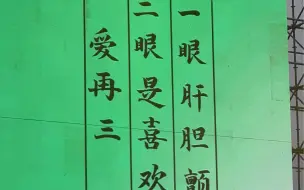 一眼肝胆颤
二眼是喜欢
爱再三